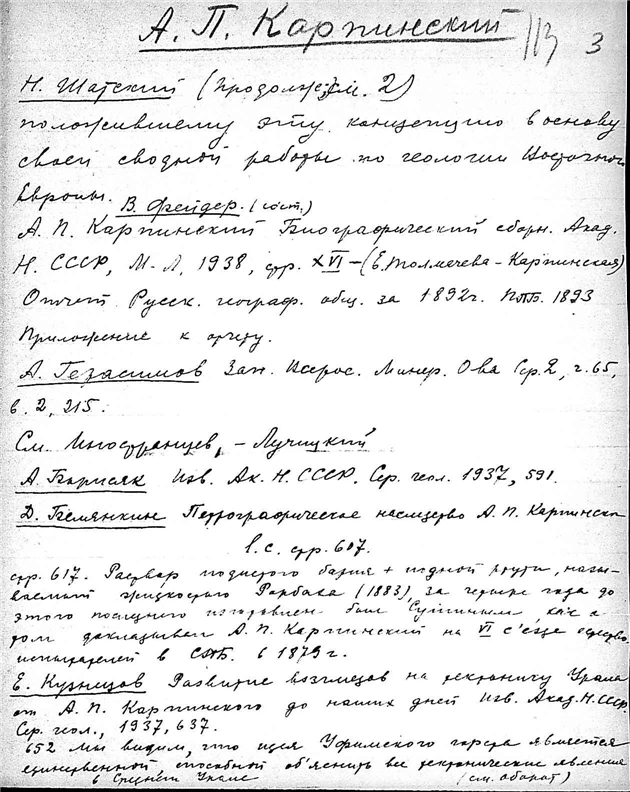 А. П. Карпинский 113 3
Н. Шатский (Продолж. см. 2)
положившему эту концепцию в основу
своей сводной работы по геологии Восточной
Европы. В. Фрейдер. (сост.)
А. П. Карпинский Биографический сборн. Акад.
Н. СССР, М-Л, 1938, стр. XVI – (Е. Толмачева-Карпинская)
Отчет Русск. географ. общ. за 1892г. ПТБ. 1893
Приложение к отчету.
А. Герасимов Зап. Всерос. Минер. О-ва Ср. 2, ч. 65,
в. 2, 215.
См. Иностранцев, – Лучицкий
А. Борисяк Изв. Ак. Н. СССР. Сер. геол. 1937, 591.
Д. Белянкин Петрографическое наследство А. П. Карпинск
l. c. стр. 607.
стр. 617. Раствор иодистого бария + иодной ртути, назы-
ваемый жидкостью Рорбаха (1883), за четыре года до
этого последнего изготовлен был Сушиным, как о
том докладывал А. П. Карпинский на VI съезде естество-
испытателей в СПБ. в 1879 г.
Е. Кузнецов Развитие взглядов на тектонику Урала
от А. П. Карпинского до наших дней Изв. Акад. Н. СССР
Сер. геол., 1937, 637.
652 Мы видим, что идея Уфимского горста является
единственной, способной об'яснить все тектонические явления
в Среднем Урале (см. оборот)